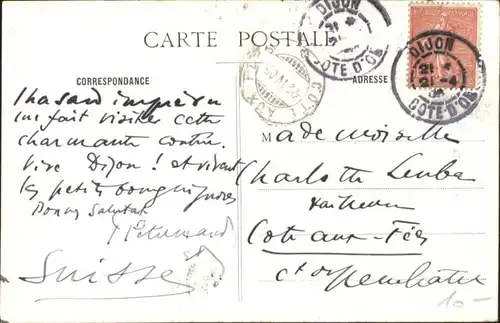 CARTE POSTALE
CORRESPONDANCE
ADRESSE
DIJON
21
COTE D'OR
DIJON
21 -4
COTE D'OR
hasard imprévu
me fait visiter cette
charmante contrée.
Vive Dijon ! et vivent
les petits bourguignons
Bonnes Salutat
Suisse
Mademoiselle
Charlotte Leuba
Côte aux Fées
Ct de Neuchatel
10 -